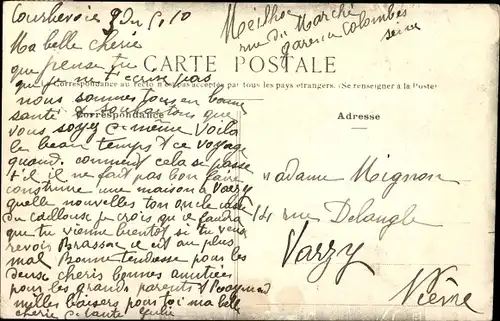 Courbevoie 9 Du 5, 10
Meilhoc
rue du Marché
garenne Colombes
seine
Ma belle cherie
CARTE POSTALE
que penses tu
que je ne t'ecrive pas
La Correspondance au recto n'est pas acceptée par tous les pays étrangers. (Se renseigner à la Poste)
nous sommes tous en bonne
santé & souhaitons que
Correspondance
Adresse
vous soyez de même Voila
le beau temps & ce voyage
quand. comment cela se passe
t'il il ne fait pas bon faire
construire une maison a Varzy
quelle nouvelles ton oncle
du Cailloux je crois qu'il faudra
que tu vienne bientot si tu veux
revoir Brassac il est au plus
mal Bonne tendresse pour les
deux cheris bonnes amitiées
pour les grands parents & Raymond
milles baisers pour toi ma belle
cherie ta tante Julie
Madame Mignon
14 rue Delangle
Varzy
Nièvre